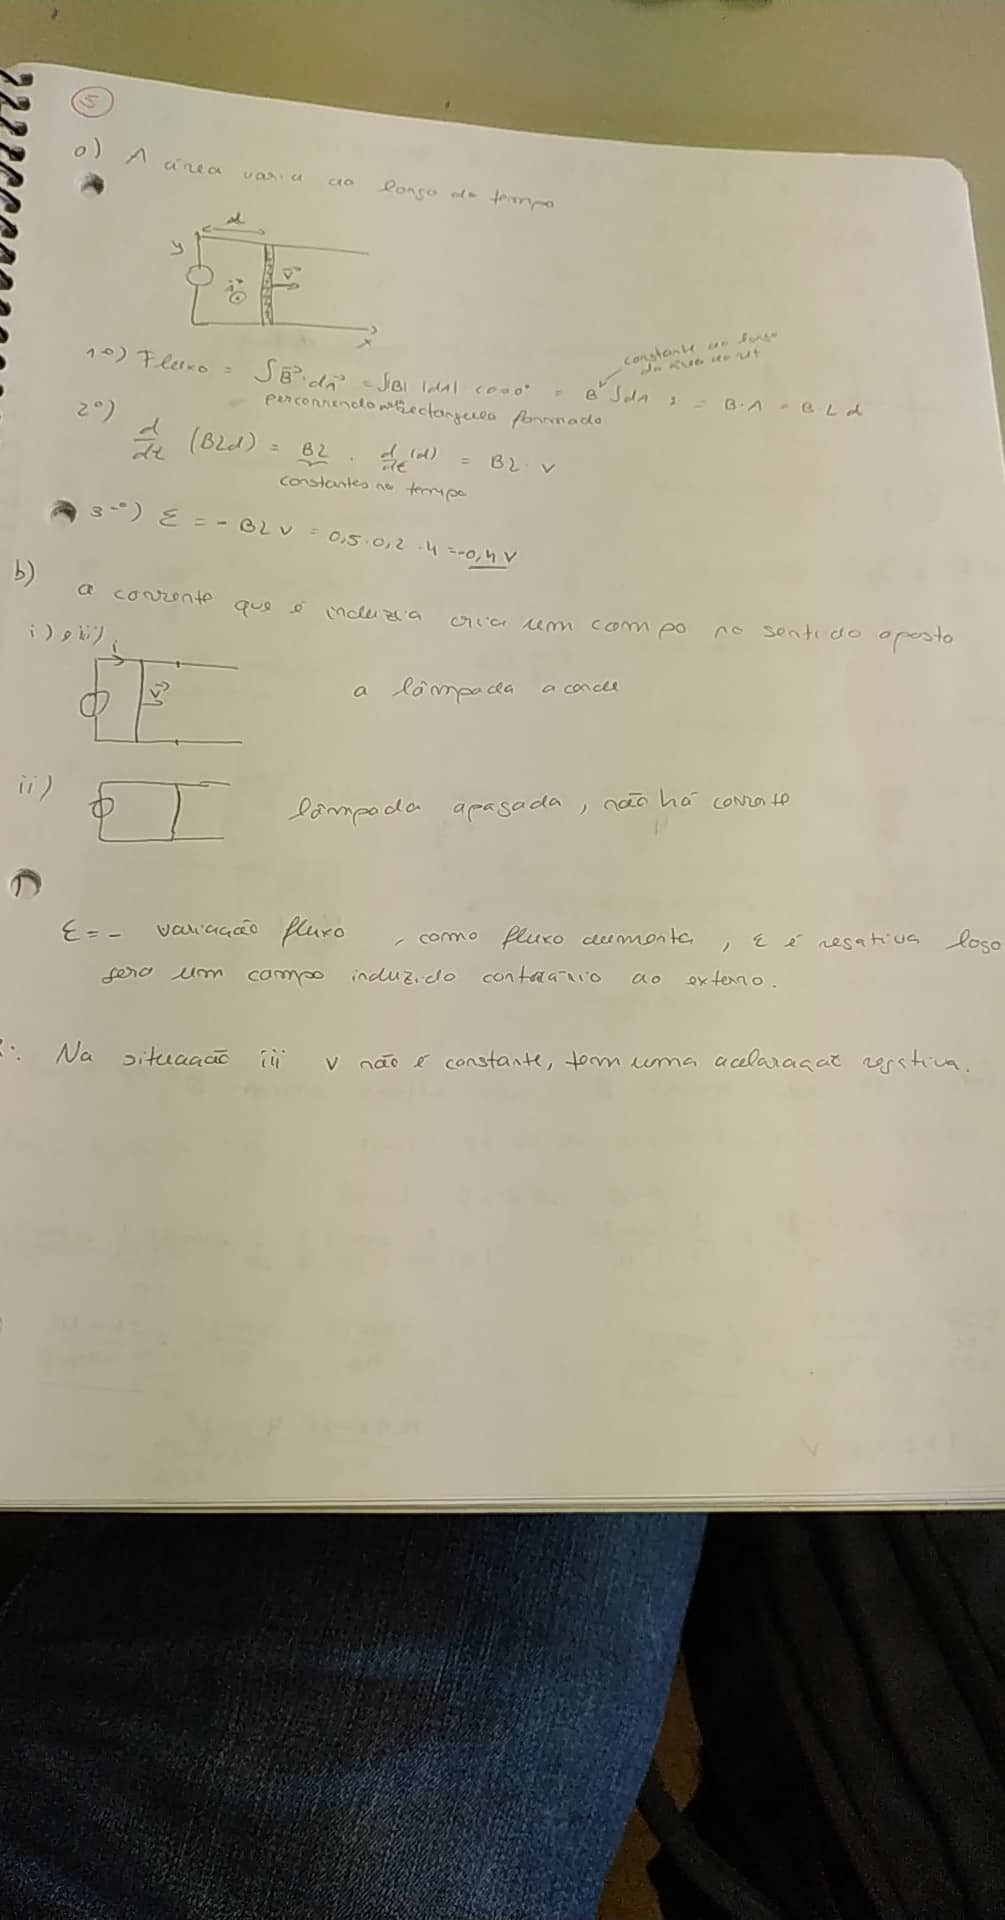 5
a) A área varia ao longo do tempo
d
y
v
x
constante ao longo
1º) Fluxo = ∫B·dA = ∫|B| |dA| cos0° = B ∫dA = B·A = B L d
percorrendo rectangulo formado
2º) d/dt (BLd) = BL · d/dt (d) = BL · v
constantes no tempo
3º) ε = - BLV = 0,5·0,2·4 = -0,4 V
b) a corrente que é induzia cria um campo no sentido oposto
i) e iii)
i
v
a lâmpada acende
ii)
lâmpada apagada, não há corrente
ε = - variação fluxo, como fluxo aumenta, ε é negativa logo
sera um campo induzido contrário ao externo.
Na situação iii v não é constante, tem uma